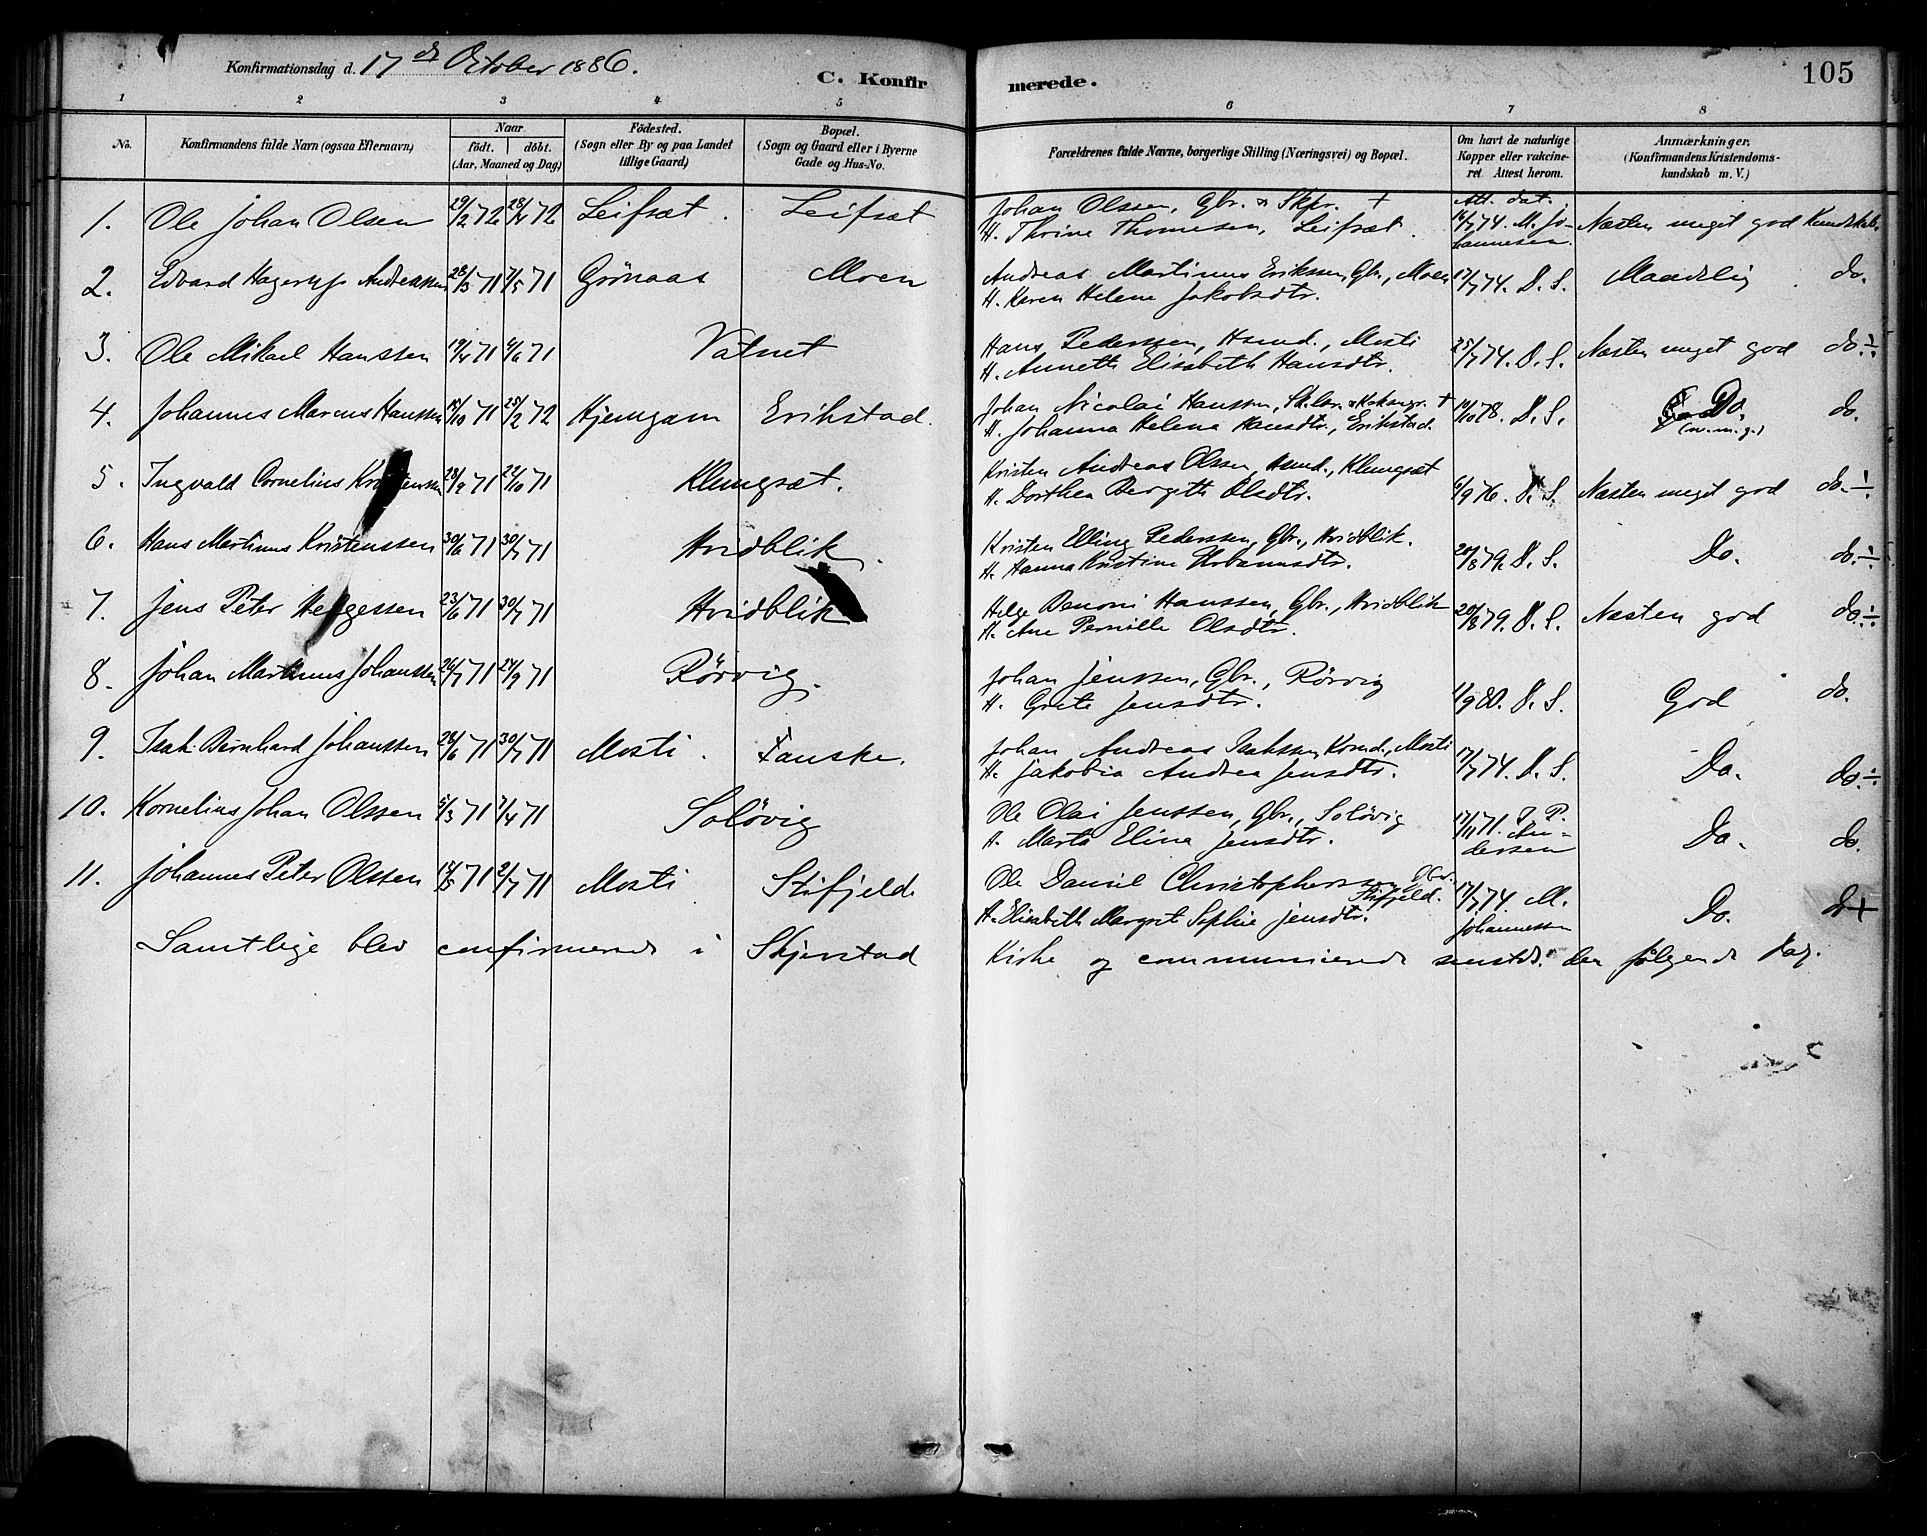 Konfirmationsdag d. 17de October 1886.
C. Konfirmerede.
105
1 2 3 4 5 6 7 8
No. Konfirmandens fulde Navn (ogsaa Efternavn) Naar født. døbt. (Aar, Maaned og Dag) Fødested. (Sogn eller By og paa Landet tillige Gaard) Bopæl. (Sogn og Gaard eller i Byerne Gade og Hus-No. Forældrenes fulde Navne, borgerlige Stilling (Næringsvei) og Bopæl. Om havt de naturlige Kopper eller vakcineret. Attest herom. Anmærkninger. (Konfirmandens Kristendomskundskab m. V.)
1. Ole Johan Olsen 29/2 72 28/4 72 Leifsæt. Leifsæt Johan Olssen, Gbr. & Skpr. + Att. dat.
H. Thrine Thomesen, Leifsæt. 16/7 74. M. Johannesen Næsten meget god Kundskab.
2. Edvard Hagerup Andreassen 28/3 71 7/5 71 Grønaas Moen Andreas Martinus Erikssen, Gbr., Moen 17/7 74. D. S. Maadelig do.
H. Karen Helene Jakobsdtr.
3. Ole Mikael Hanssen 19/4 71 4/6 71 Vatnet Hans Pederssen, Hsmd., Mosti 25/7 74. D. S. Næsten meget god do. ÷
H. Annette Elisabeth Hansdtr.
4. Johannes Marcus Hanssen 10/10 71 25/2 72 Hjemgam Erikstad. Johan Nicolai Hanssen, +
H. Johanna Helena Hansdtr., Erikstad. 14/10 78. D. S. Do. (n. m. g.) do.
5. Ingvald Cornelius Kristenssen 28/9 71 22/10 71 Klungsæt. Kristen Andreas Olssen, Hsmd., Klungsæt
H. Dorthea Bergitte Olsdtr. 6/9 76. D. S. Næsten meget god do. ÷
6. Hans Martinus Kristenssen 30/6 71 30/7 71 Hvidblik. Kristen Elling Pederssen, Gbr., Hvidblik.
H. Hanna Kristine Urbanusdtr. 20/8 79. D. S. Do. do. ÷
7. Jens Peter Helgessen 23/6 71 30/7 71 Hvidblik Helge Benoni Hanssen, Gbr., Hvidblik
H. Ane Pernille Olsdtr. 20/8 79. D. S. Næsten god do. ÷
8. Johan Martinus Johanssen 26/7 71 24/9 71 Rörvig. Johan Jenssen, Gbr., Rörvig
H. Grete Jensdtr. 1/9 80. D. S. God do.
9. Isak Bernhard Johanssen 26/6 71 30/7 71 Mosti. Fauske. Johan Andreas Isakssen, Mosti
H. Jakobia Andrea Jensdtr. 17/7 74. D. S. Do. do. ÷
10. Kornelius Johan Olssen 5/3 71 7/4 71 Solövig Ole Olai Jenssen, Gbr., Solövig 17/11 71. J. P. Andersen
H. Marta Elina Jensdtr. Do. do.
11. Johannes Peter Olssen 14/5 71 2/7 71 Mosti Stifjeld. Ole Daniel Christopherssen Gbr. Stifjeld. 17/7 74. M. Johannessen
H. Elisabeth Margret Sophie Jensdtr. Do. do +
Samtlige blev confirmerede i Skjerstad Kirke og communicerede senstds. den følgende Dag.